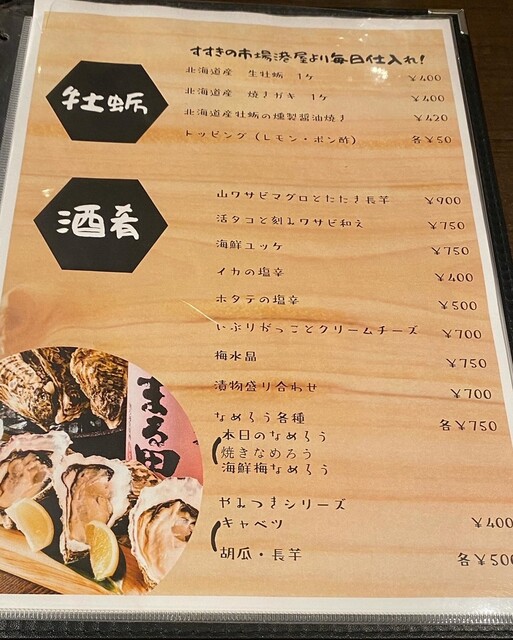 すすきの市場港屋より毎日仕入れ!
牡蛎
北海道産 生牡蛎 1ケ ¥400
北海道産 焼きガキ 1ケ ¥400
北海道産牡蛎の燻製醤油焼き ¥420
トッピング(レモン・ポン酢) 各¥50
酒肴
山ワサビマグロとたたき長芋 ¥900
活タコと刻みワサビ和え ¥750
海鮮ユッケ ¥750
イカの塩辛 ¥400
ホタテの塩辛 ¥500
いぶりがっことクリームチーズ ¥700
梅水晶 ¥750
漬物盛り合わせ ¥700
なめろう各種 各¥750
本日のなめろう
焼きなめろう
海鮮梅なめろう
やみつきシリーズ
キャベツ ¥400
胡瓜・長芋 各¥500
まる田